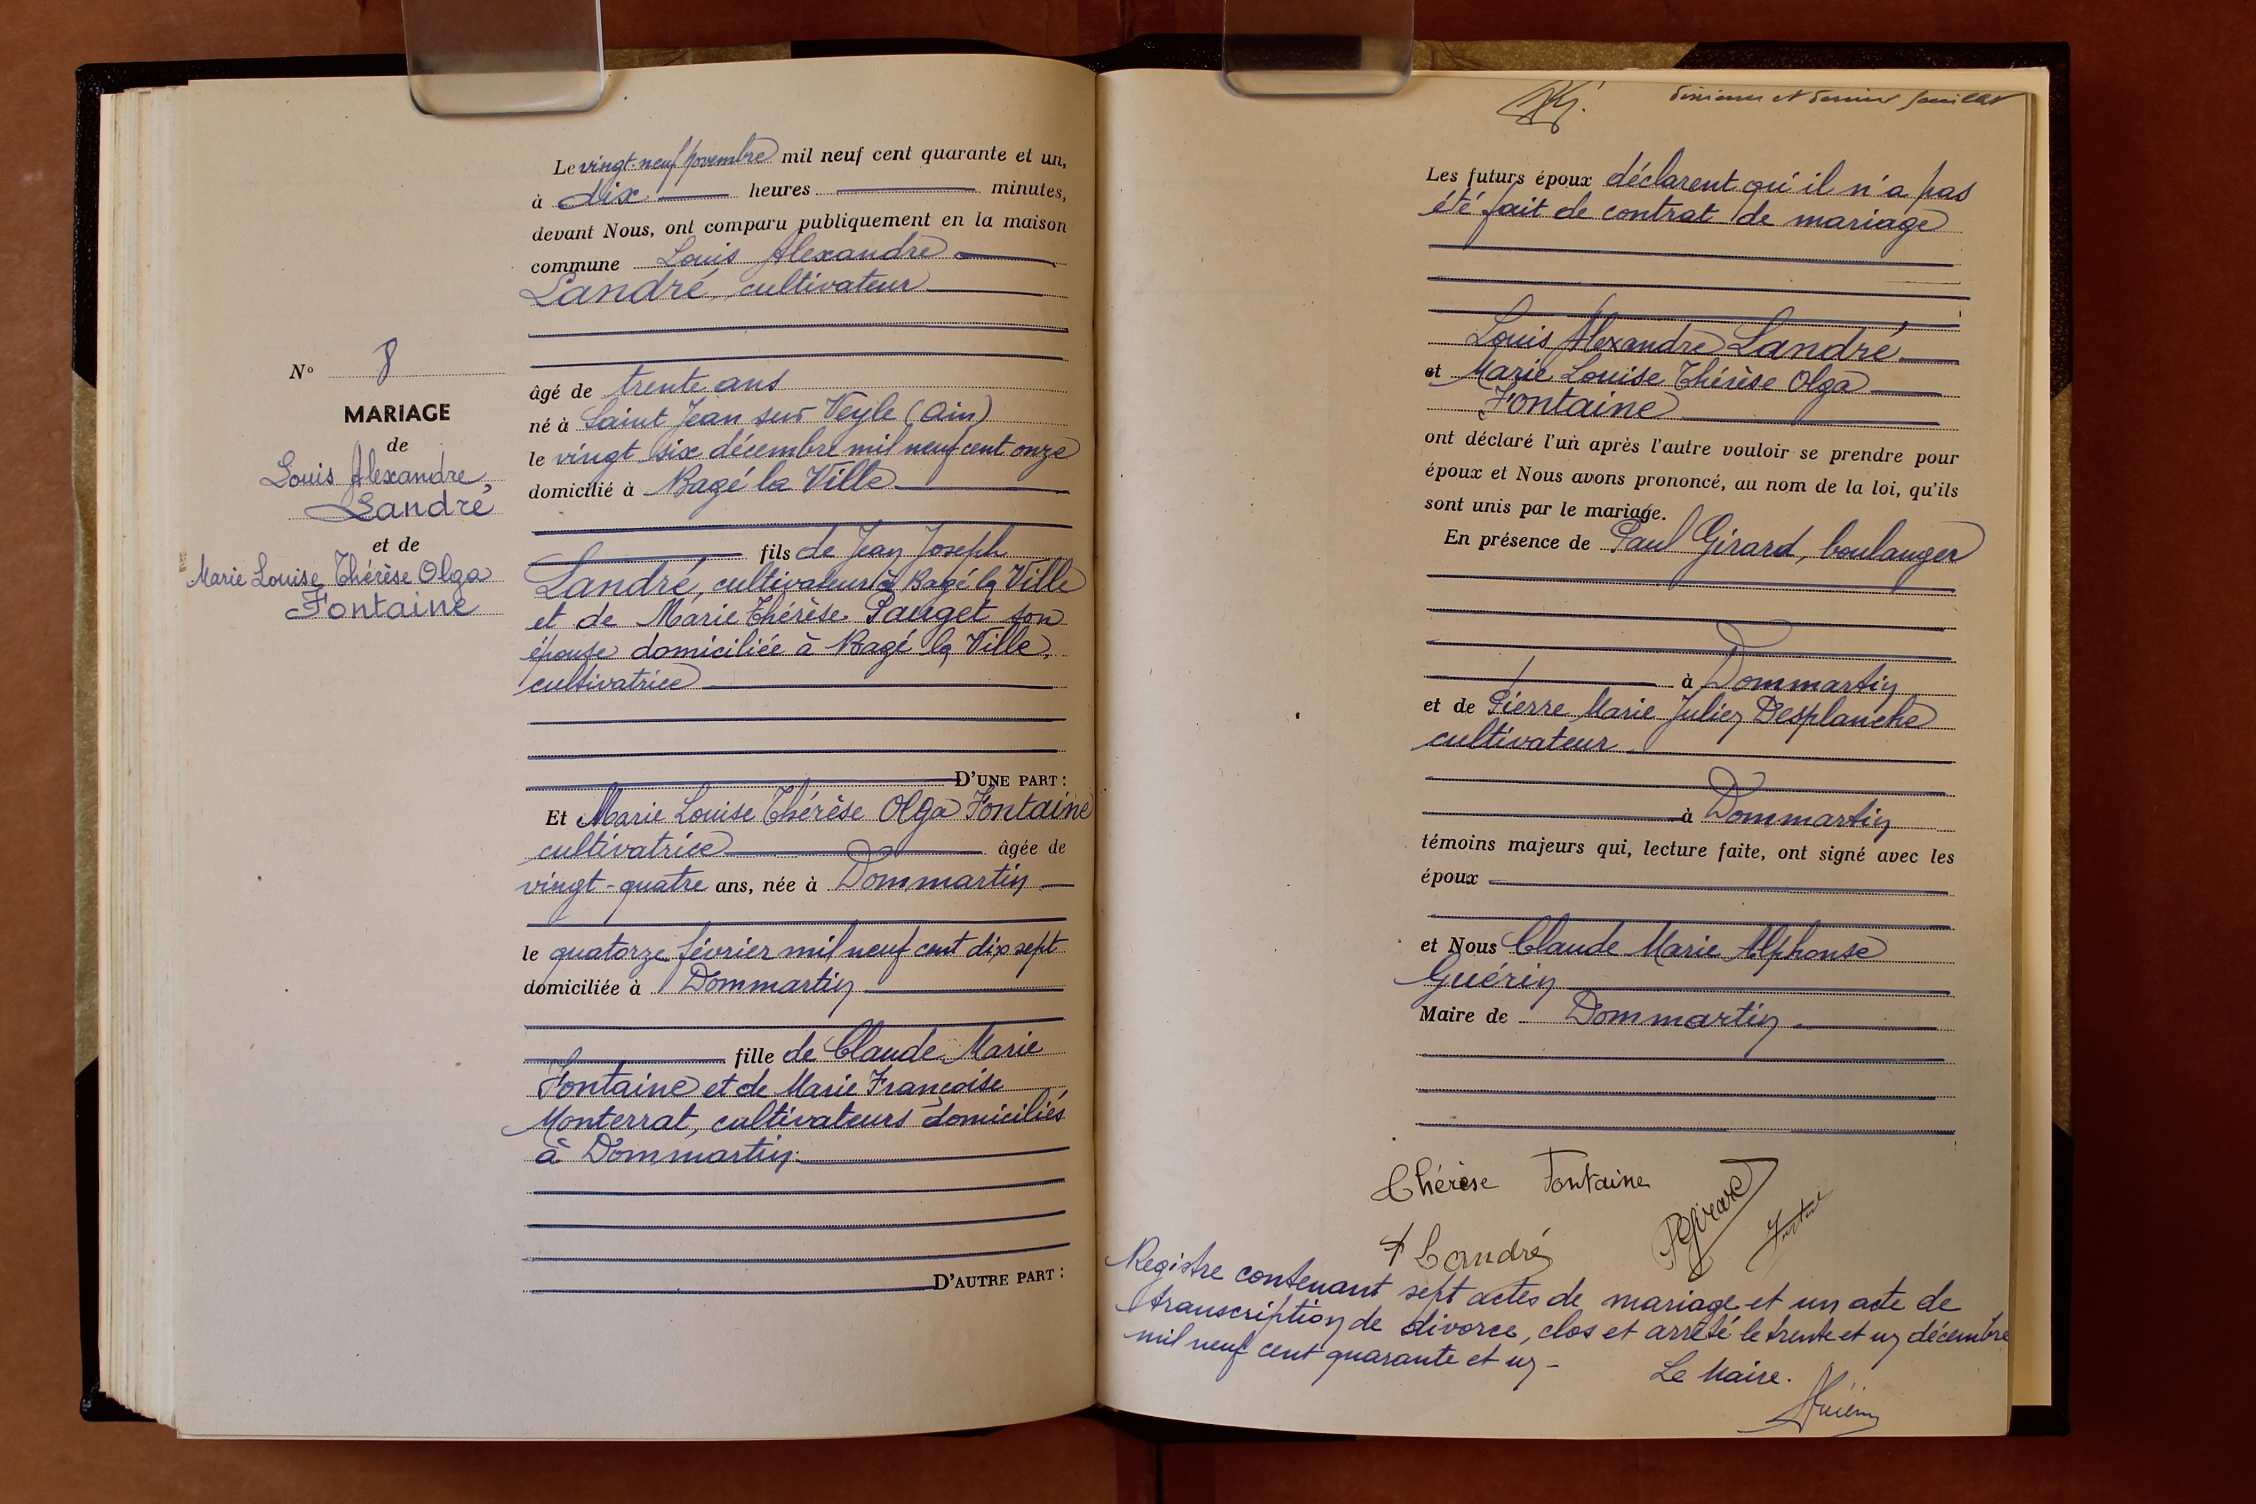 Le vingt-neuf novembre mil neuf cent quarante et un,
à dix heures minutes,
devant Nous, ont comparu publiquement en la maison
commune Louis Alexandre
Landré, cultivateur
âgé de trente ans
né à Saint Jean sur Veyle (Ain)
le vingt six décembre mil neuf cent onze
domicilié à Bagé la Ville
fils de Jean Joseph
Landré, cultivateur à Bagé la Ville
et de Marie Thérèse Pauget son
épouse domiciliée à Bagé la Ville,
cultivatrice
D'UNE PART :
Et Marie Louise Thérèse Olga Fontaine
cultivatrice âgée de
vingt-quatre ans, née à Dommartin
le quatorze février mil neuf cent dix sept
domiciliée à Dommartin
fille de Claude Marie
Fontaine et de Marie Françoise
Monterrat, cultivateurs domiciliés
à Dommartin
D'AUTRE PART :
N° 8
MARIAGE
de
Louis Alexandre
Landré
et de
Marie Louise Thérèse Olga
Fontaine
dernier et dernier feuillet
Les futurs époux déclarent qu'il n'a pas
été fait de contrat de mariage
Louis Alexandre Landré
et Marie Louise Thérèse Olga
Fontaine
ont déclaré l'un après l'autre vouloir se prendre pour
époux et Nous avons prononcé, au nom de la loi, qu'ils
sont unis par le mariage.
En présence de Paul Girard, boulanger
à Dommartin
et de Pierre Marie Julien Desplanche
cultivateur
à Dommartin
témoins majeurs qui, lecture faite, ont signé avec les
époux
et Nous Claude Marie Alphonse
Guérin
Maire de Dommartin
Thérèse Fontaine
PGirard
Landré
Registre contenant sept actes de mariage et un acte de
transcription de divorce, clos et arrêté le trente et un décembre
mil neuf cent quarante et un -
Le Maire.
Guérin